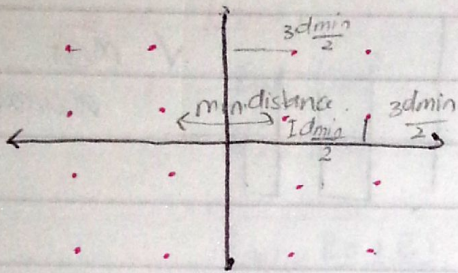 3dmin
2
min.distance
1dmin
2
3dmin
2